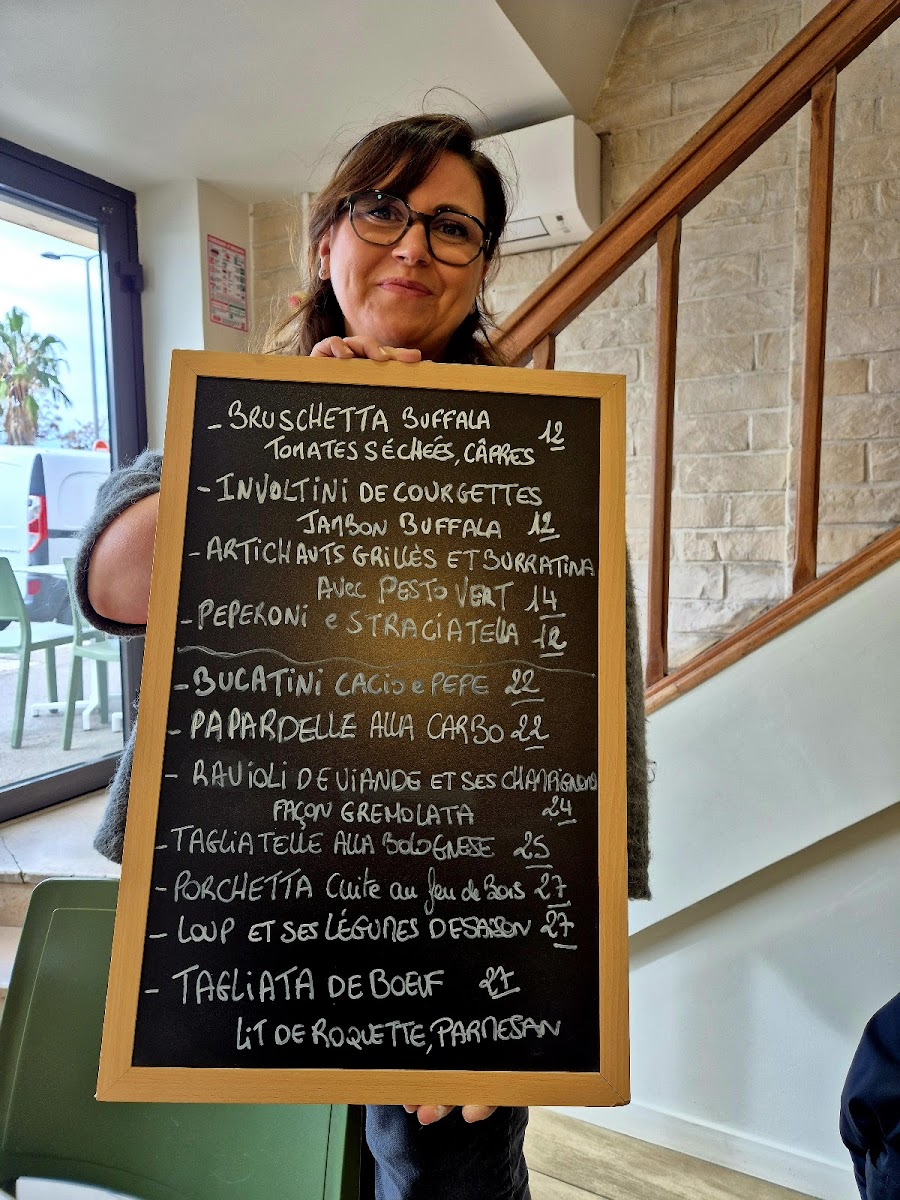 - BRUSCHETTA BUFFALA 12
TOMATES SÉCHÉES, CÂPRES
- INVOLTINI DE COURGETTES
JAMBON BUFFALA 12
- ARTICHAUTS GRILLÈS ET BURRATINA
AVEC PESTO VERT 14
- PEPERONI e STRACIATELLA 12
- BUCATINI CACIO e PEPE 22
- PAPARDELLE ALLA CARBO 22
- RAVIOLI DE VIANDE ET SES CHAMPIGNONS
FAÇON GREMOLATA 24
- TAGLIATELLE ALLA BOLOGNESE 25
- PORCHETTA Cuite au feu de Bois 27
- LOUP ET SES LÉGUMES DE SAISON 27
- TAGLIATA DE BOEUF 27
LIT DE ROQUETTE, PARMESAN